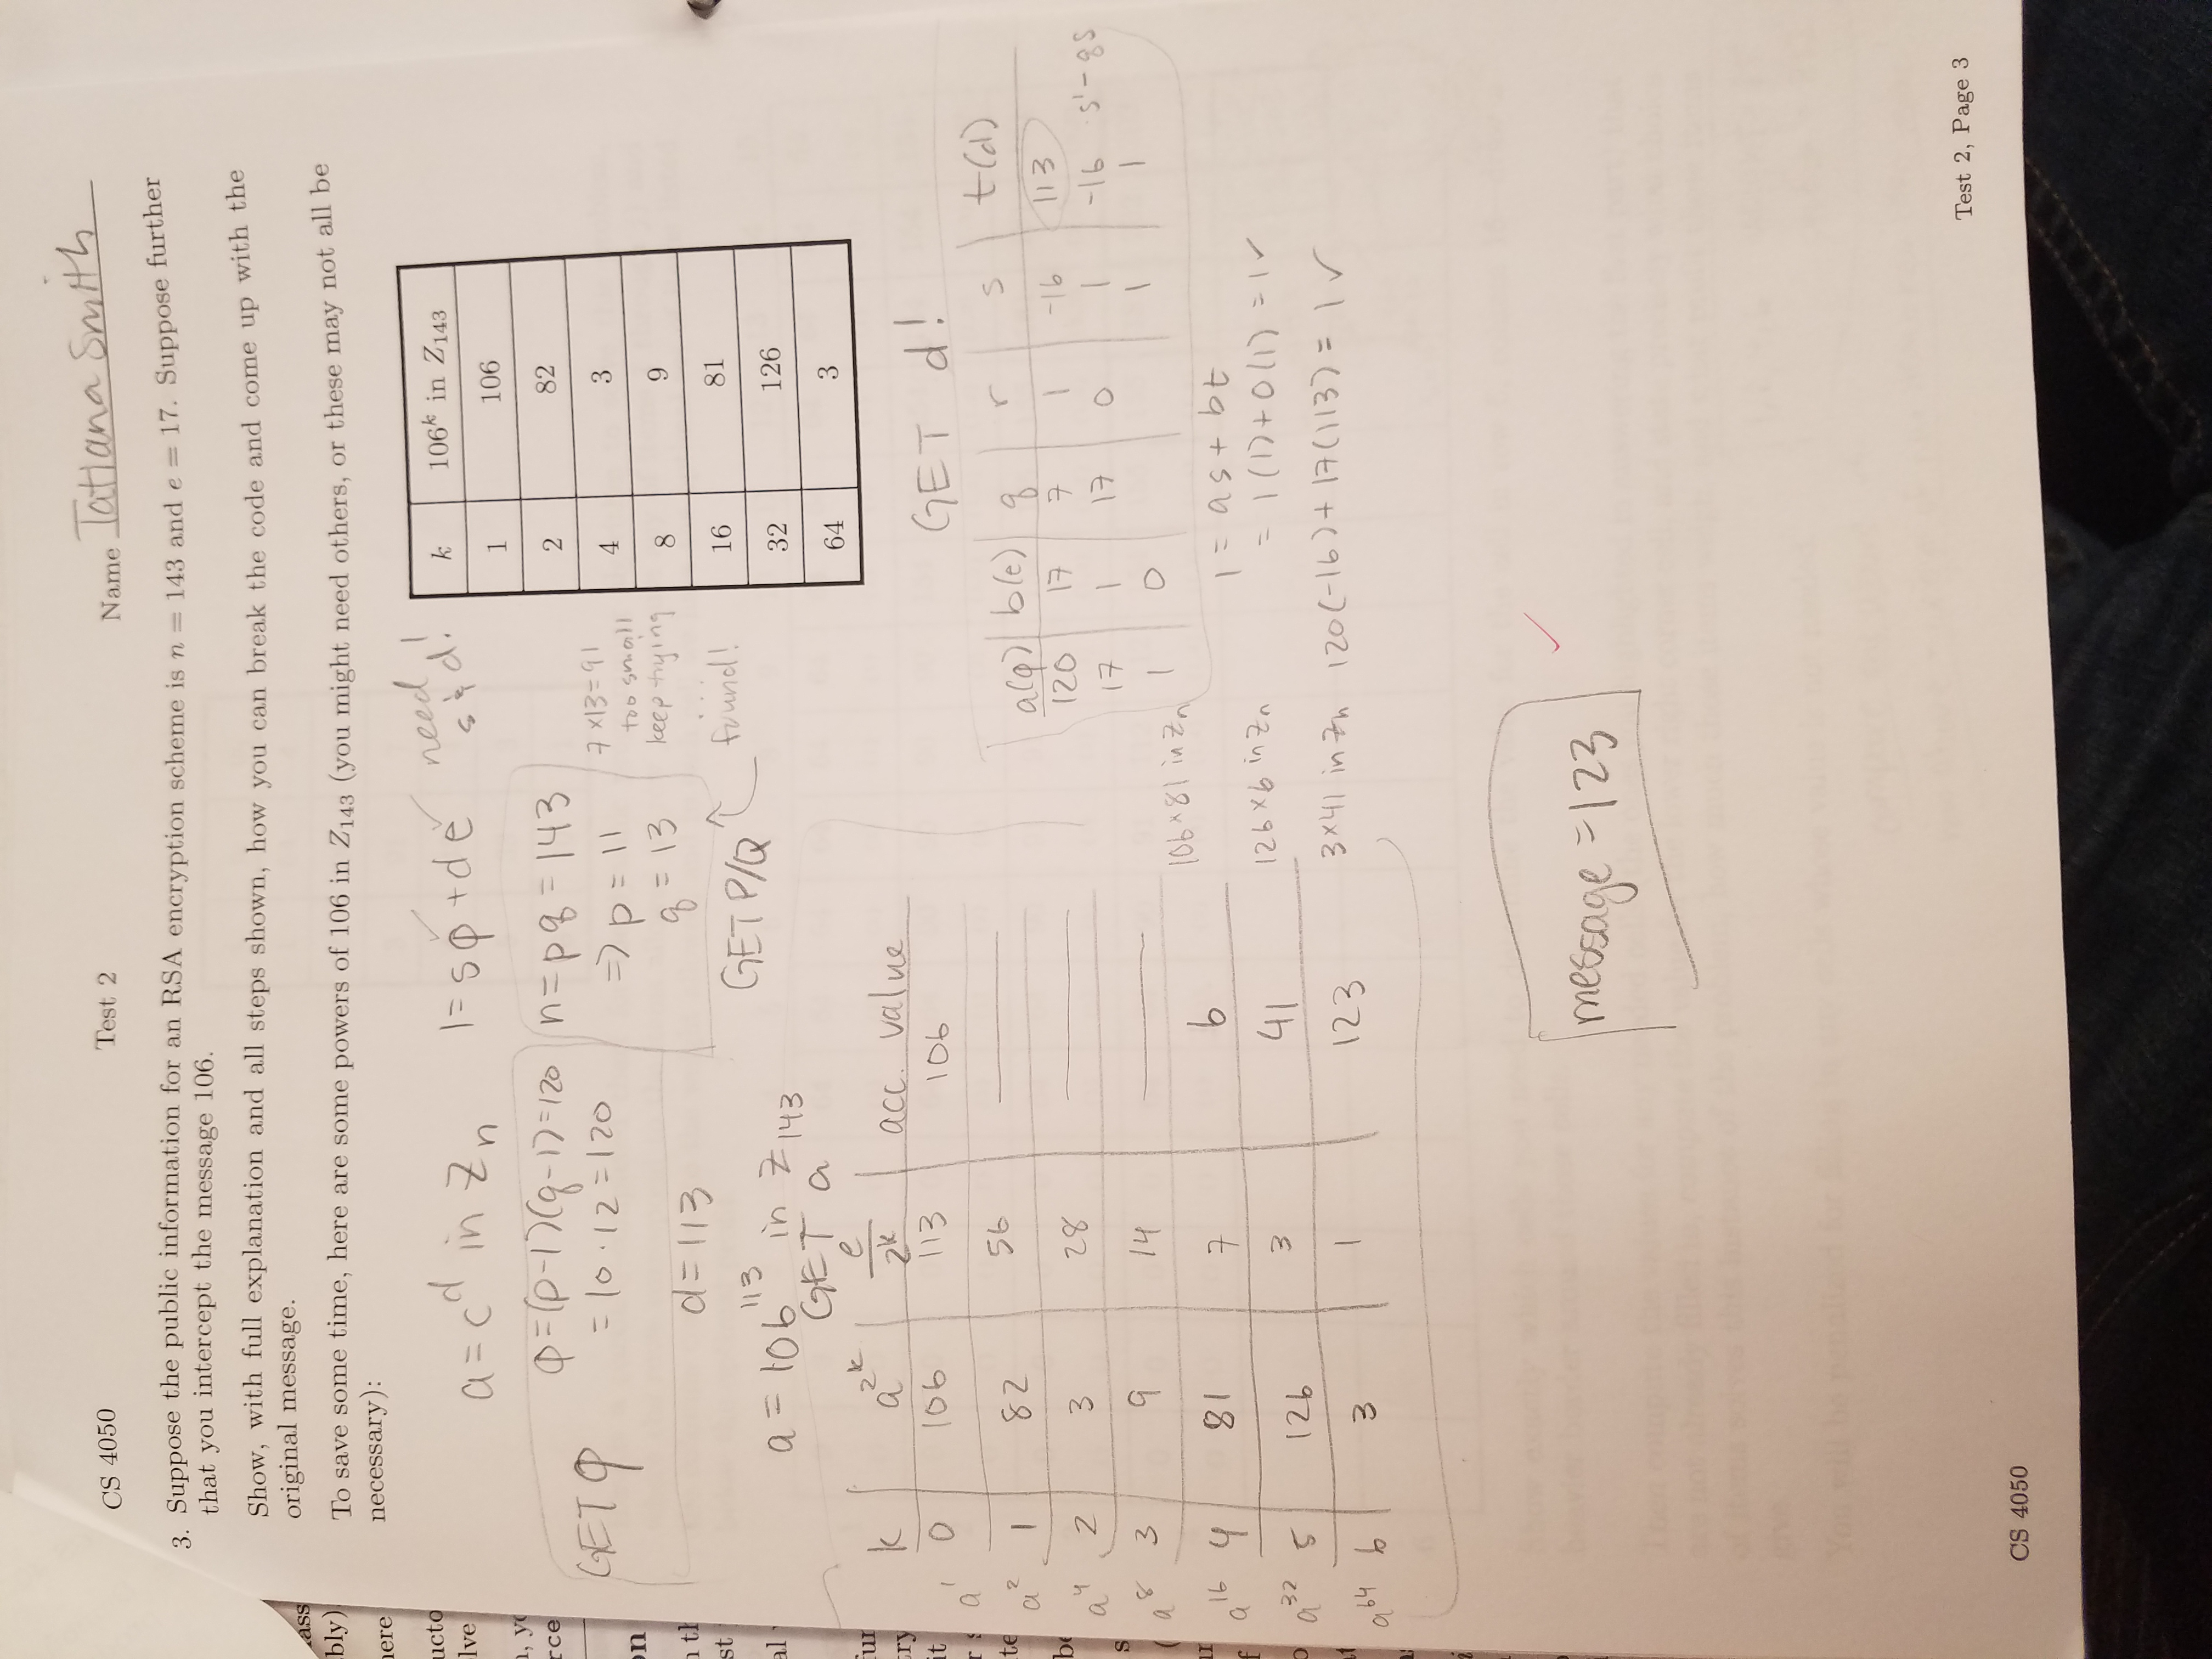 CS 4050
Test 2
Name Tatiana Smith
3. Suppose the public information for an RSA encryption scheme is n = 143 and e = 17. Suppose further
that you intercept the message 106.
Show, with full explanation and all steps shown, how you can break the code and come up with the
original message.
To save some time, here are some powers of 106 in Z₁₄₃ (you might need others, or these may not all be
necessary):
a = c^d in Zₙ
1 = sφ + de
✓ ✓
need
s & d!
k 106^k in Z₁₄₃
1 106
2 82
4 3
8 9
16 81
32 126
64 3
GET φ
φ = (p-1)(q-1) = 120
= 10 · 12 = 120
n = pq = 143
⇒ p = 11
q = 13
GET P/Q
7 x 13 = 91
too small
keep trying
...
found!
d = 113
a = 106^113 in Z₁₄₃
GET a
k a^2^k e/2^k acc. value
a^1 0 106 113 106
a^2 1 82 56 —
a^4 2 3 28 —
a^8 3 9 14 —
a^16 4 81 7 6 106 x 81 in Zₙ
a^32 5 126 3 41 126 x 6 in Zₙ
a^64 6 3 1 123 3 x 41 in Zₙ
GET d!
a(φ) b(e) q r s t(d)
120 17 7 1 -16 113
17 1 17 0 1 -16 s' - qs
1 0 1 1
1 = as + bt
= 1(1) + 0(1) = 1 ✓
120(-16) + 17(113) = 1 ✓
message = 123
✓
Test 2, Page 3
CS 4050
ass
bly)
here
ucto
lve
rce
on
st
al